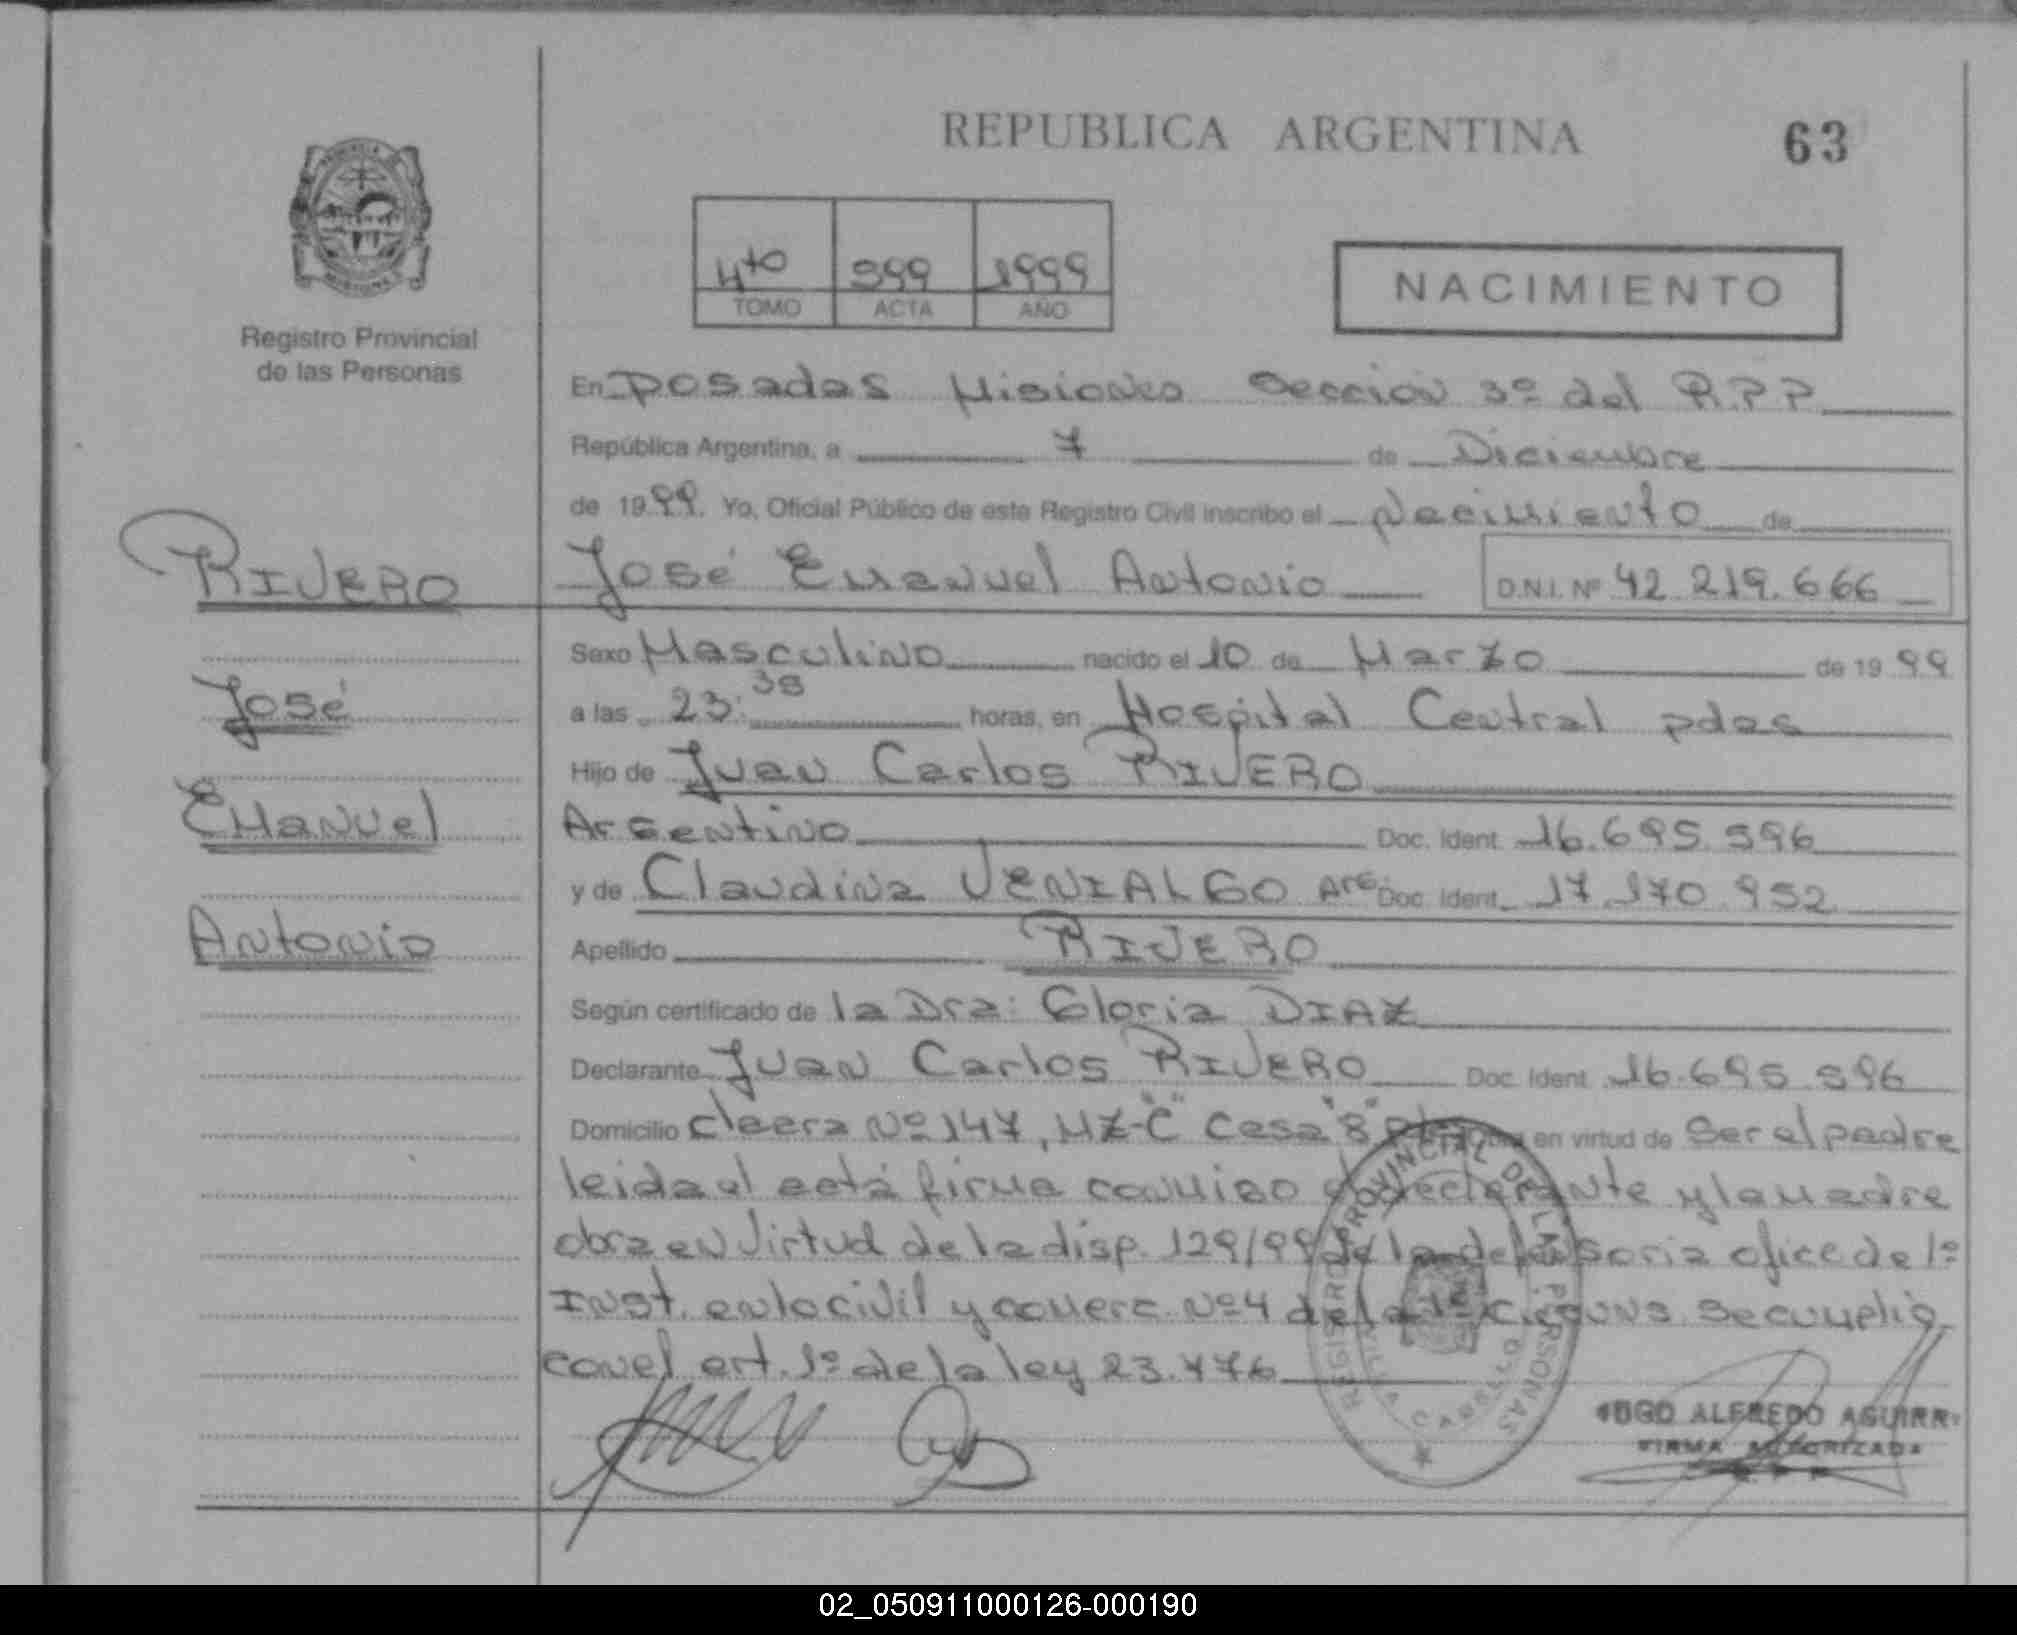 REPUBLICA ARGENTINA
63
4to 599 1999
TOMO ACTA AÑO
NACIMIENTO
Registro Provincial
de las Personas
En Posadas Misiones Sección 3º del R.P.P
República Argentina, a 7 de Diciembre
de 1999. Yo, Oficial Público de este Registro Civil inscribo el Nacimiento de
RIVERO
José Emanuel Antonio D.N.I. Nº 42.219.666
Sexo Masculino nacido el 10 de Marzo de 1999
José
a las 23:38 horas, en Hospital Central pdas
Hijo de Juan Carlos RIVERO
Emanuel
Argentino Doc. Ident. 16.695.596
y de Claudina VENIALGO Arg. Doc. Ident. 17.170.952
Antonio
Apellido RIVERO
Según certificado de la Dra: Gloria DIAZ
Declarante Juan Carlos RIVERO Doc. Ident. 16.695.596
Domicilio chacra Nº 147, MZ-"C" Casa "8" en virtud de Ser el padre
leida el acta firma conmigo el declarante y la madre
obra en virtud de la disp. 129/99 de la defensoria ofic. de 1º
Inst. en lo civil y comerc. Nº 4 de la 1º circuns. Se cumplio
con el art. 1º de la ley 23.776
REGISTRO PROVINCIAL DE LAS PERSONAS
VILLA CABELLO
HUGO ALFREDO AGUIRRE
FIRMA AUTORIZADA
02_050911000126-000190